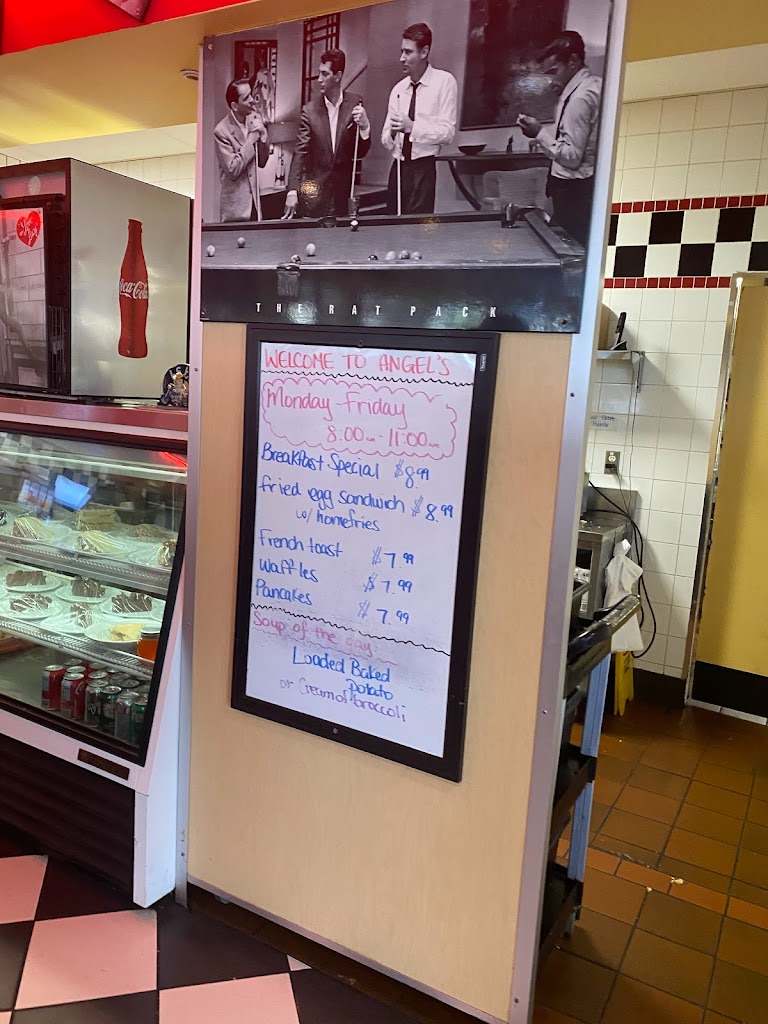 THE RAT PACK
Coca-Cola
WELCOME TO ANGEL'S
Monday-Friday
8:00am - 11:00am
Breakfast Special $8.99
fried egg sandwich $8.99
w/ homefries
French toast $7.99
Waffles $7.99
Pancakes $7.99
Soup of the day:
Loaded Baked
Potato
or Cream of broccoli